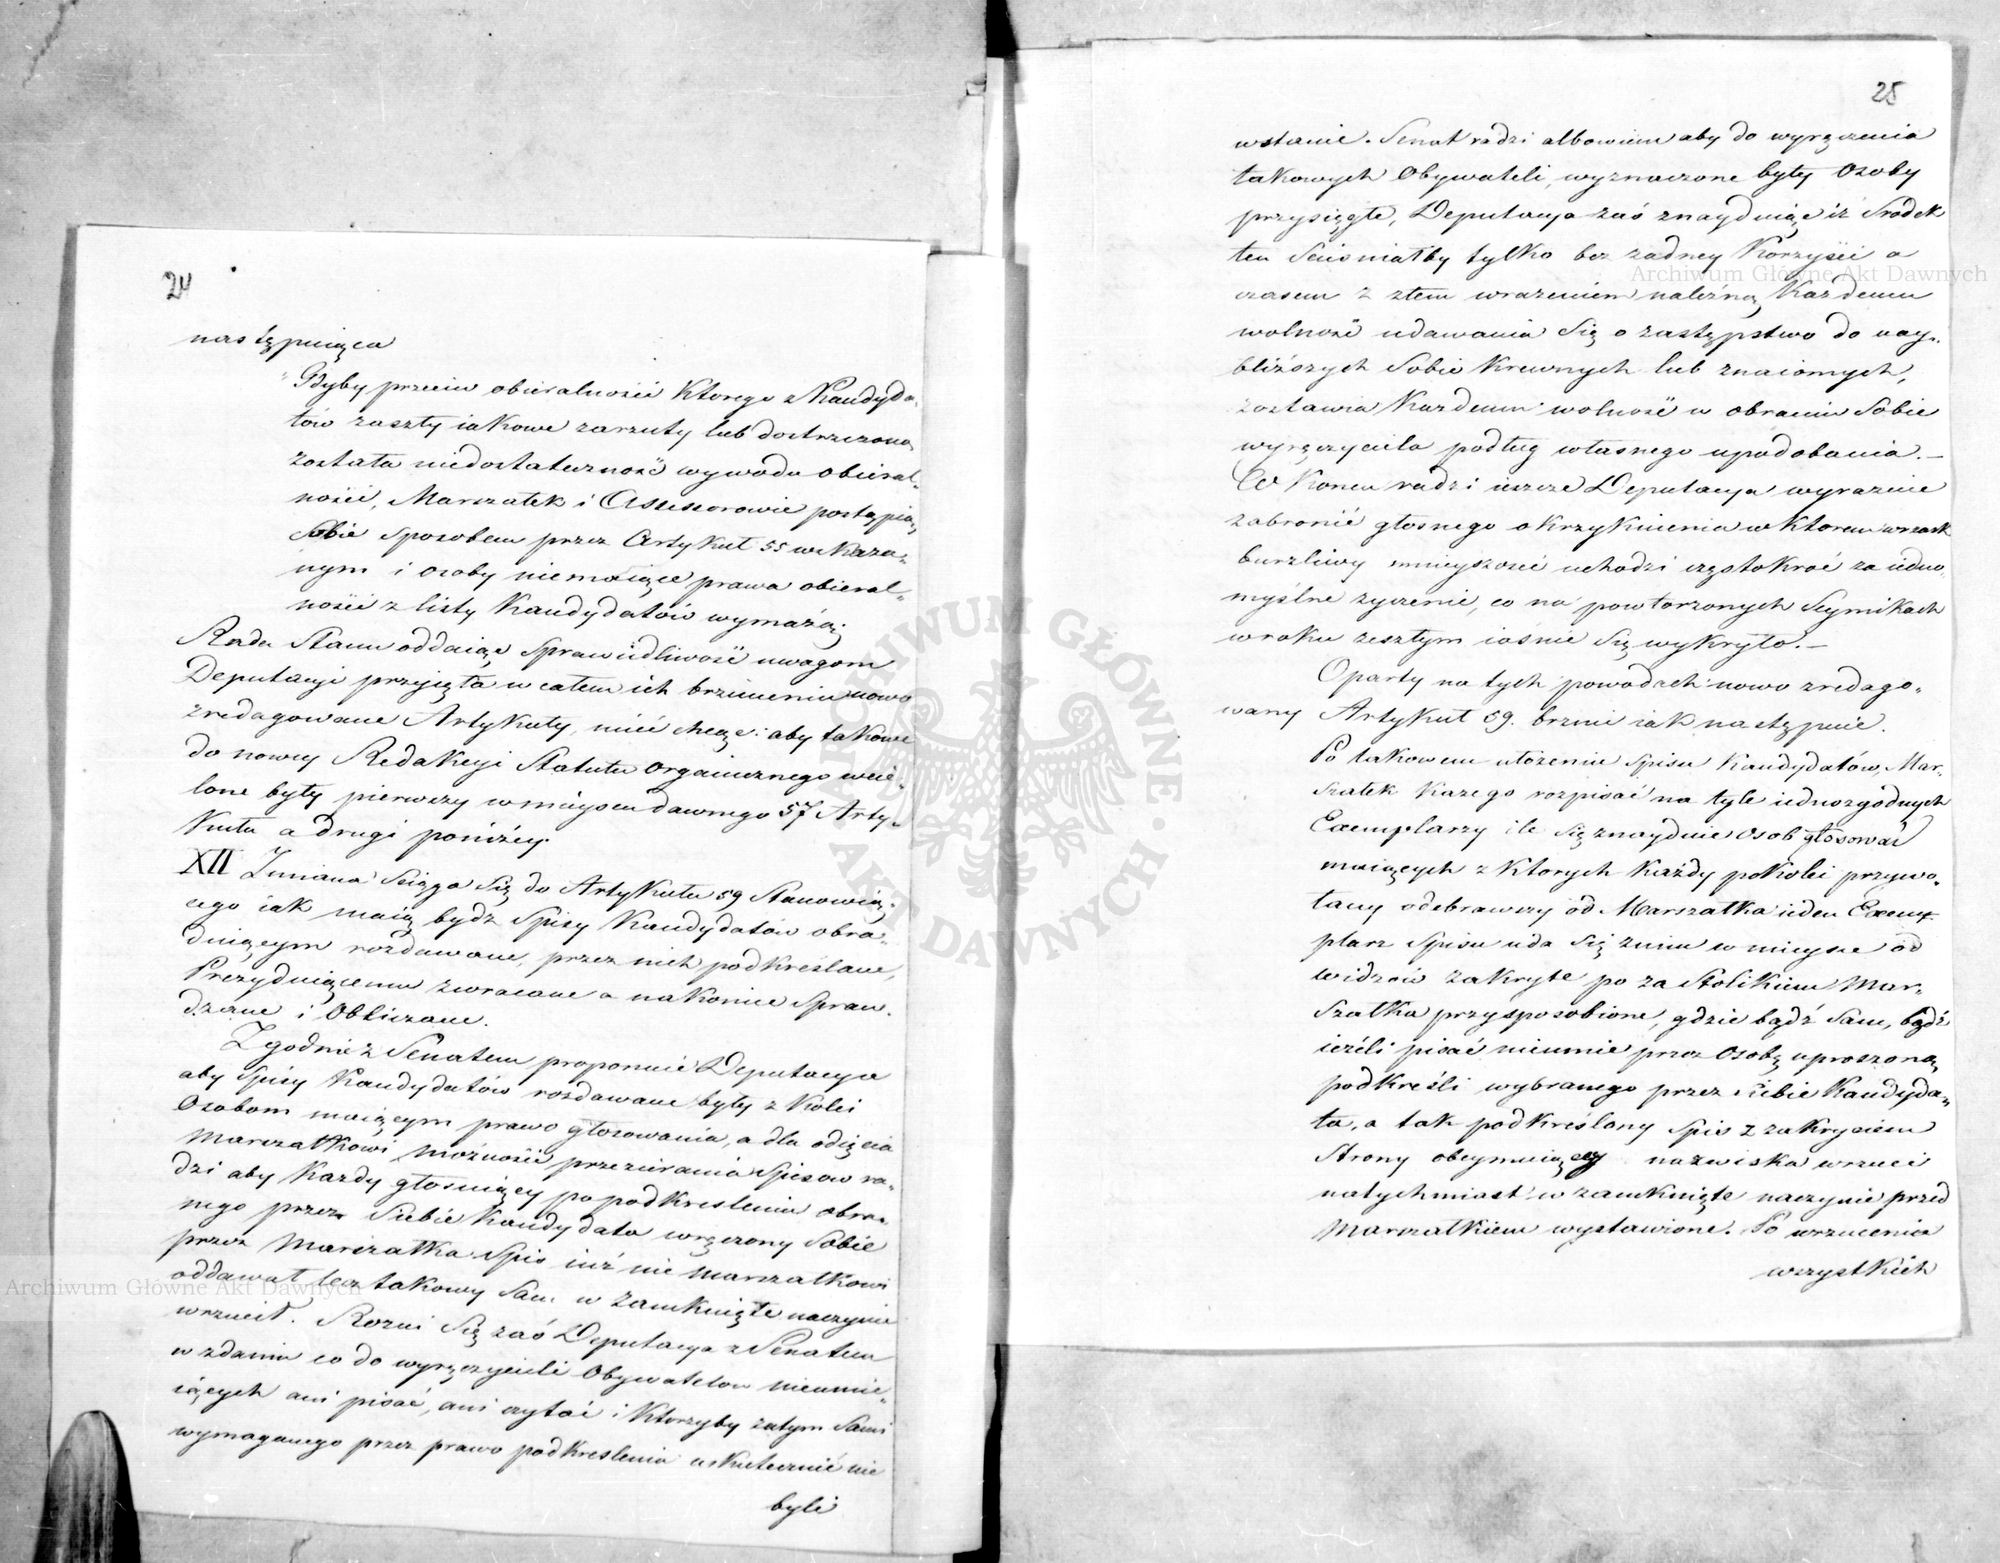 24
następuiąca
"Gdyby przeciw obieralności ktorego z Kandyda-
tów zaszły iakowe zarzuty lub dostrzeżoną
została niedostateczność wywodu obieral-
ności, Marszałek i Assessorowie postąpią
Sobie sposobem przez Artykuł 55 wskaza-
nym i osoby niemaiące prawa obieral-
ności z listy Kandydatów wymażą.
Rada Stanu oddaiąc sprawiedliwość uwagom
Deputacyi przyięła w całem ich brzmieniu nowo
zredagowane Artykuły, mieć chcąc: aby takowe
do nowey Redakcyi Statutu organicznego wcie-
lone były pierwszy w mieyscu dawnego 57 Arty-
kułu a drugi poniżey.
XII Zmiana ściąga się do Artykułu 59 stanowią-
cego iak maią bydz Spisy Kandydatów obra-
duiącym rozdawane, przez nich podkreślane,
Prezyduiącemu zwracane a nakoniec spraw-
dzane i obliczane.
Zgodnie z Senatem proponuie Deputacya
aby Spisy Kandydatów rozdawane były z kolei
Osobom maiącym prawo głosowania, a dla odięcia
Marszałkowi możności przezierania Spisow ra-
dzi aby każdy głosuiący po podkreśleniu obra-
nego przez Siebie Kandydata wręczony Sobie
przez Marszałka Spis iuż nie Marszałkowi
oddawał lecz takowy Sam w zamknięte naczynie
wrzucił. Rożni się zaś Deputacya z Senatem
w zdaniu co do wyręczycieli Obywatelow nieumie-
iących ani pisać, ani czytać i ktorzyby zatym Sami
wymaganego przez prawo podkreślenia uskutecznić nie
byli
25
wstanie. Senat radzi albowiem aby do wyręczenia
takowych Obywateli, wyznaczone były Osoby
przysięgłe, Deputacya zaś znayduiąc iż Srodek
ten Scieśniałby tylko bez żadney korzyści a
czasem z złem wrażeniem należną każdemu
wolność udawania Się o zastępstwo do nay-
bliższych Sobie krewnych lub znaiomych,
zostawia każdemu wolność w obraniu Sobie
wyręczyciela podług własnego upodobania.—
W końcu radzi ieszcze Deputacya wyraźnie
zabronić głosnego okrzyknienia w ktorem wrzask
burzliwy mnieyszość uchodzi częstokroć za iedno-
myślne życzenie, co na powtorzonych Seymikach
w roku zeszłym iaśnie Się wykryło.—
Oparty na tych powodach nowo zredago-
wany Artykuł 59. brzmi iak następuie.
Po takowem ułożeniu Spisu Kandydatów, Mar-
szałek każe go rozpisać na tyle iednozgodnych
Exemplarzy ile Się znayduie Osob głosować
maiących z ktorych każdy po kolei przywo-
łany odebrawszy od Marszałka ieden Exem-
plarz Spisu uda Się z nim w mieysce od
widzów zakryte po za Stolikiem Mar-
szałka przysposobione, gdzie bądź Sam, bądź
ieżeli pisać nieumie przez Osobę uproszoną
podkreśli wybranego przez Siebie Kandyda-
ta, a tak podkreślony Spis z zakryciem
Strony obeymuiącey nazwiska wrzuci
natychmiast w zamknięte naczynie przed
Marszałkiem wystawione. Po wrzuceniu
wszystkich
Archiwum Główne Akt Dawnych
Archiwum Główne Akt Dawnych
ARCHIWUM GŁÓWNE · AKT DAWNYCH ·